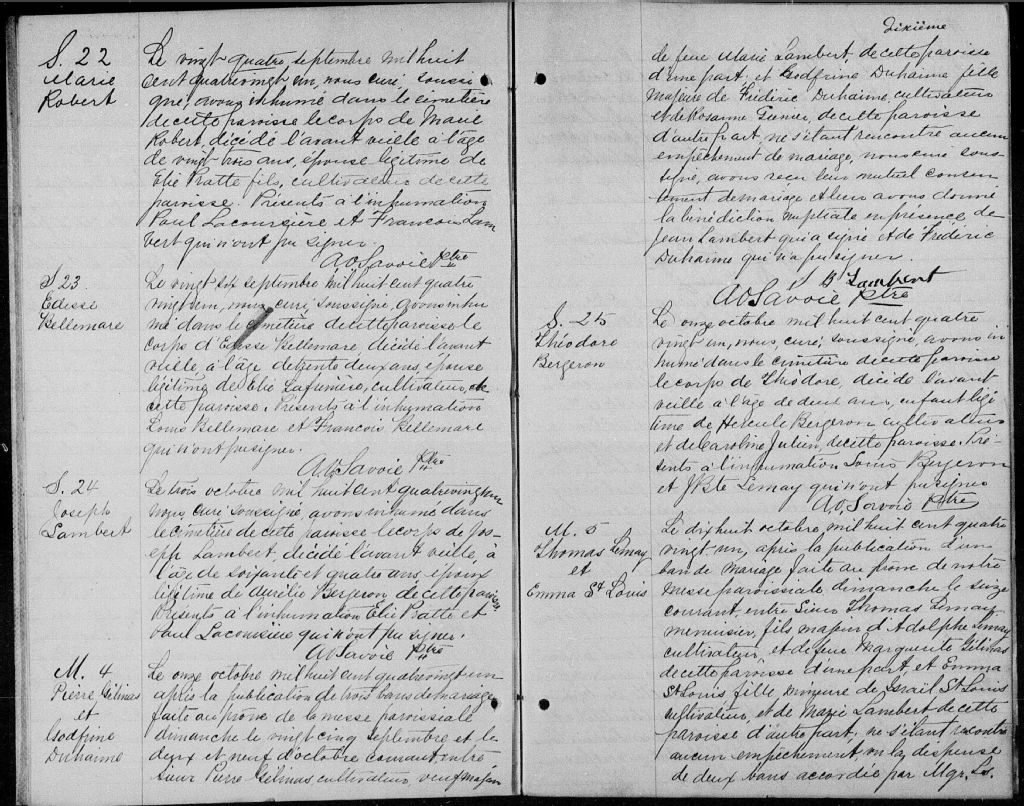 S. 22
Marie
Robert
Le vingt quatre septembre mil huit
cent quatrevingt un, nous curé, soussi
gné, avons inhumé dans le cimetière
de cette paroisse le corps de Marie
Robert, décédé l'avant veille à l'âge
de vingt trois ans, épouse légitime de
Elie Pratte fils, cultivateur de cette
paroisse. Présents à l'inhumation
Paul Lacoursière et Francois Lam
bert qui n'ont pu signer.
A O Savoie Ptre
S 23
Edesse
Bellemare
Le vingt six septembre mil huit cent quatre
vingt un, nous, curé, soussigné, avons inhu
mé dans le cimetière de cette paroisse le
corps d'Edesse Bellemare, décédé l'avant
veille, à l'âge de trente deux ans, épouse
légitime de Elie Lafrenière, cultivateur, de
cette paroisse. Présents à l'inhumation
Louis Bellemare et Francois Bellemare
qui n'ont pu signer.
A. O. Savoie Ptre
S. 24
Joseph
Lambert
Le trois octobre mil huit cent quatrevingt un
nous curé soussigné, avons inhumé dans
le cimetière de cette paroisse le corps de Jos-
eph Lambert, décédé l'avant veille, à
l'âge de soixante et quatre ans, époux
légitime de Aurélie Bergeron de cette paroisse
Présents à l'inhumation Elie Pratte et
Paul Lacoursière qui n'ont pu signer.
A O Savoie Ptre
M. 4
Pierre Gélinas
et
Godfrine
Duhaime
Le onze octobre mil huit cent quatrevingt un
après la publication de trois bans de mariage
faite au prône de la messe paroissiale
dimanche le vingt cinq septembre et le
deux et neuf d'octobre courant, entre
Sieur Pierre Gélinas, cultivateur, veuf majeur
Dixième
de feue Marie Lambert, de cette paroisse
d'une part; et Godfrine Duhaime fille
majeure de Frédéric Duhaime, cultivateur
et de Rosanne, de cette paroisse
d'autre part, ne s'étant rencontré aucun
empêchement de mariage, nous curé sous-
signé, avons reçu leur mutuel consen
tement de mariage et leur avons donné
la bénédiction nuptiale en présence de
Jean Lambert qui a signé et de Frédéric
Duhaime qui n'a pu signer.
Lambert
A O Savoie Ptre
S. 25
Théodore
Bergeron
Le onze octobre mil huit cent quatre
vingt un, nous, curé, soussigné, avons in
humé dans le cimetière de cette paroisse
le corps de Théodore, décédé l'avant
veille à l'âge de deux ans, enfant légi
time de Hercule Bergeron cultivateur
et de Caroline Julien, de cette paroisse. Pré-
sents à l'inhumation Louis Bergeron
et J Bte Lemay qui n'ont pu signer
A O. Savoie Ptre
M. 5
Thomas Lemay
et
Emma St Louis
Le dixhuit octobre, mil huit cent quatre
vingt un, après la publication d'un
ban de mariage faite au prône de notre
messe paroissiale, dimanche le seize
courant, entre Sieur Thomas Lemay
menuisier, fils majeur d'Adolphe Lemay
cultivateur, et de feue Marguerite Gélinas
de cette paroisse d'une part et Emma
St Louis fille mineure de Israël St Louis
cultivateur, et de Marie Lambert de cette
paroisse d'autre part; ne s'étant rencontré
aucun empêchement vu la dispense
de deux bans accordée par Mgr. Ls.